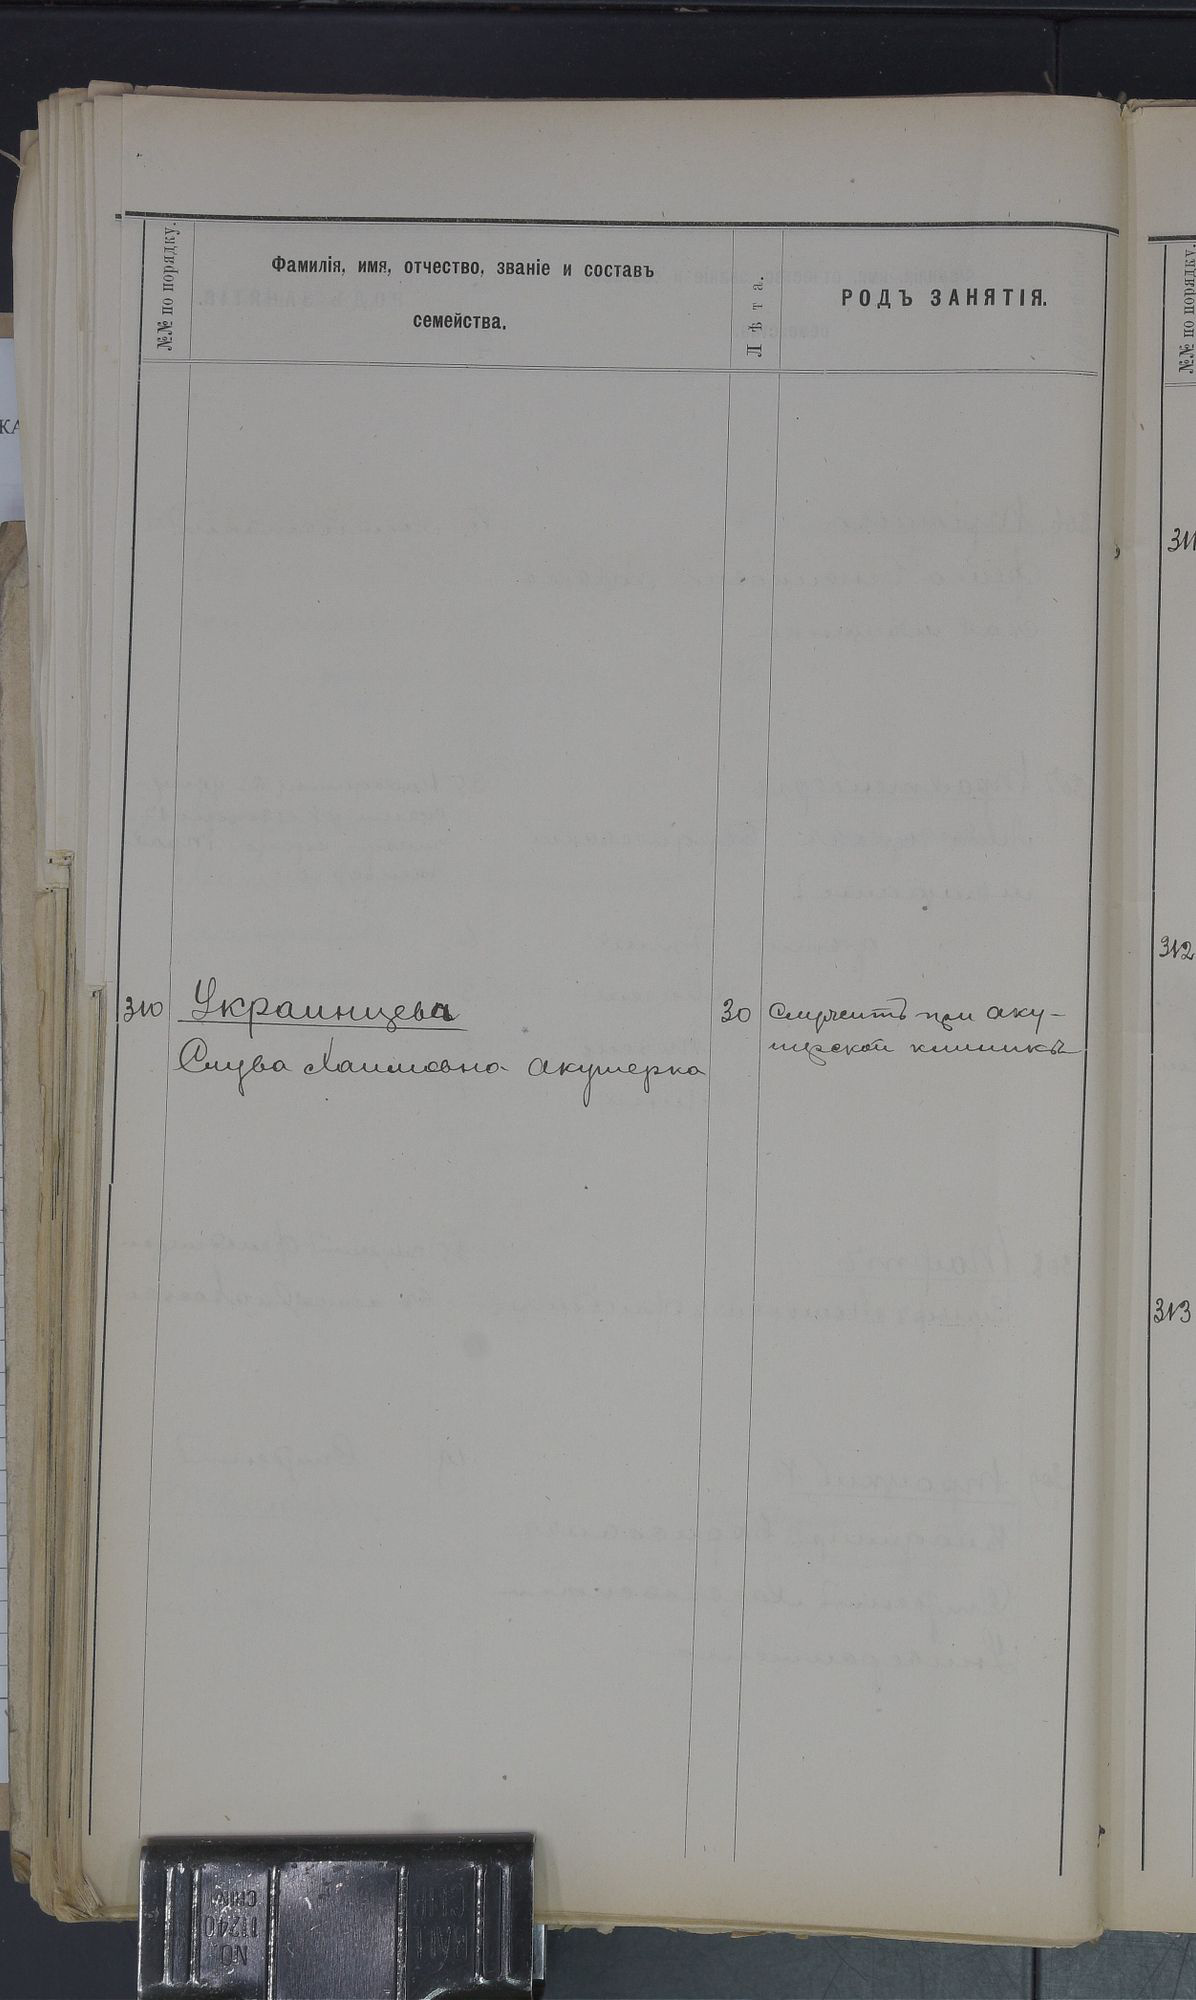 №№ по порядку.
Фамилія, имя, отчество, званіе и составъ
семейства.
Лѣта.
РОДЪ ЗАНЯТІЯ.
310 Украинцева 30 Служитъ при аку-
шерской клиникѣ
Слува Хаимовна акушерка
№№ по порядку.
311
312
313